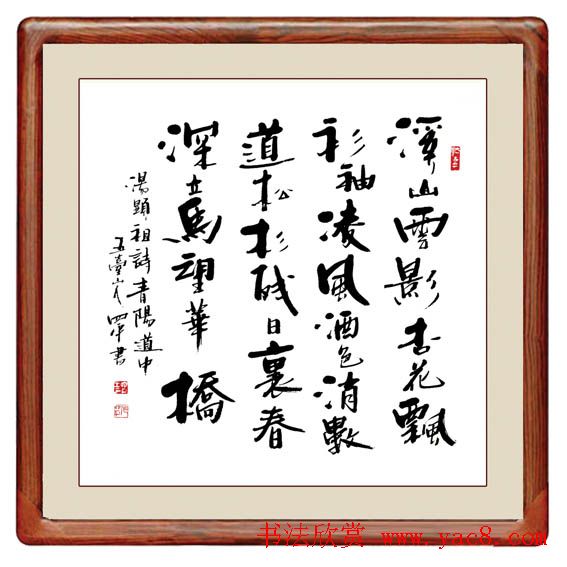 溪山雲影杏花飄
衫袖凌風酒色消數
道松杉殘日裏春
深立馬望華橋
湯顯祖詩青陽道中
五臺山人四書
书法欣赏 www.yac8.com